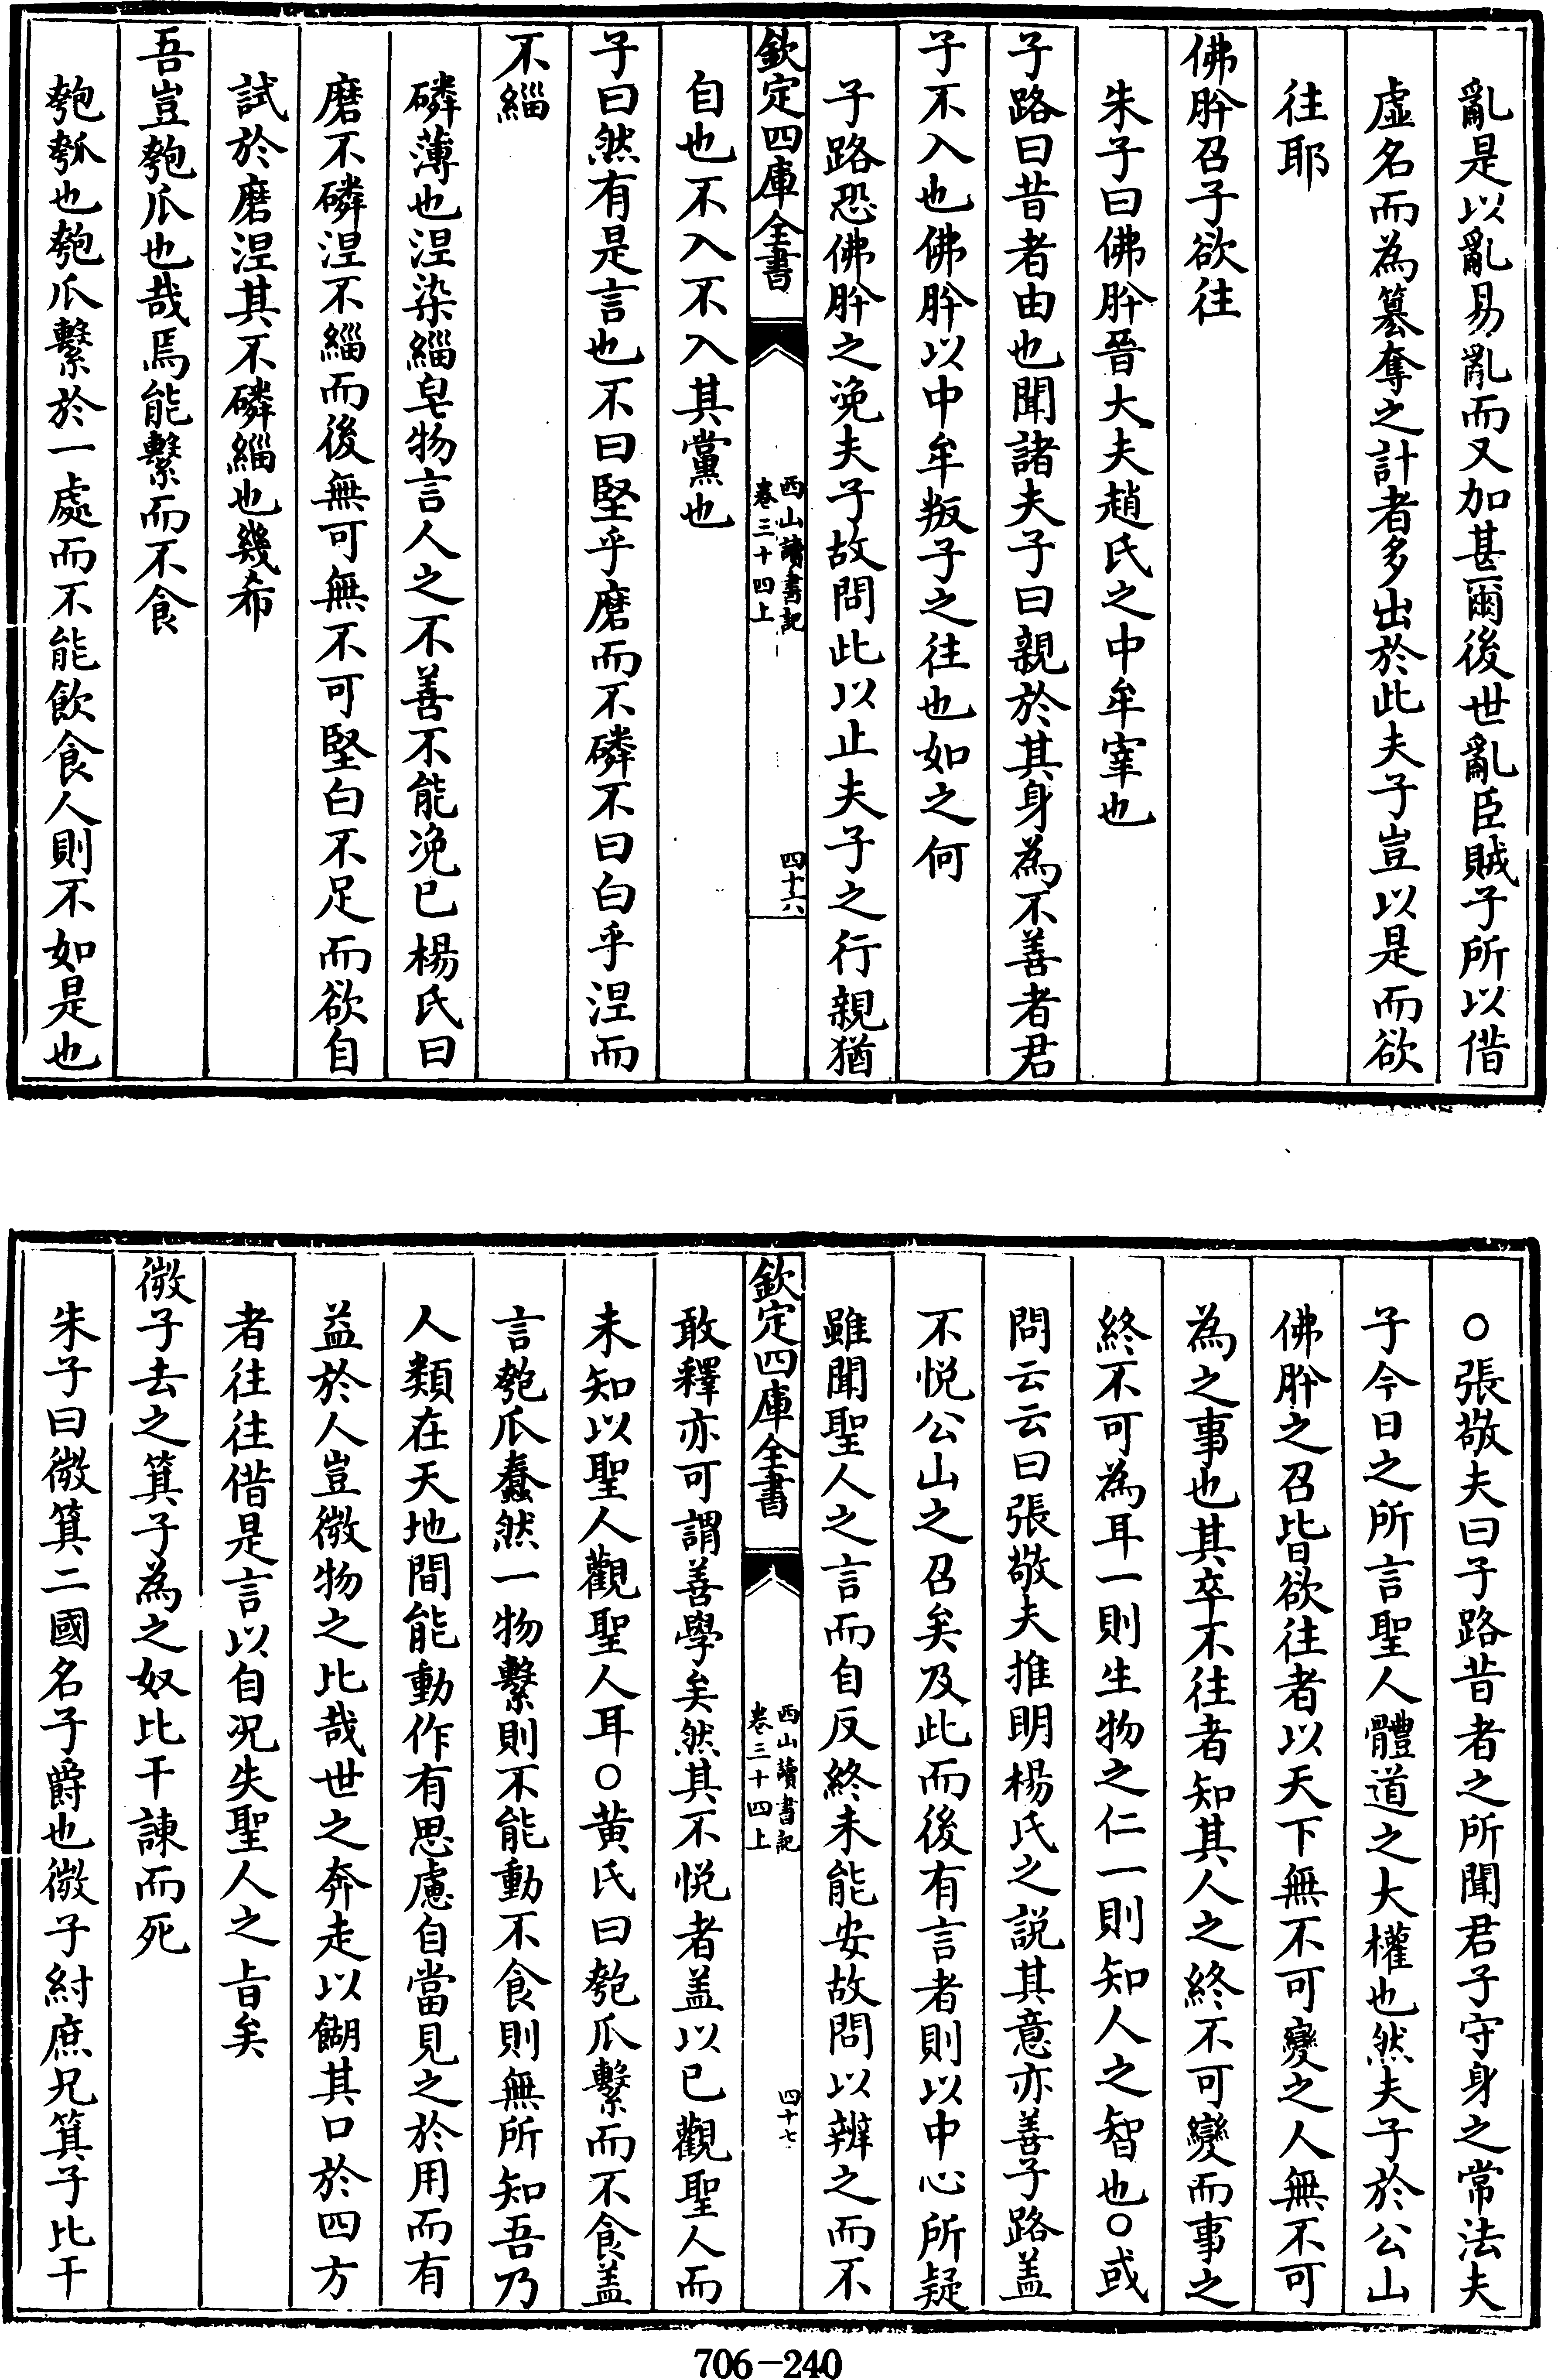 亂是以亂易亂而又加甚爾後世亂臣賊子所以借
虛名而為簒奪之計者多出於此夫子豈以是而欲
往耶
佛肸召子欲往
朱子曰佛肸晉大夫趙氏之中牟宰也
子路曰昔者由也聞諸夫子曰親於其身為不善者君
子不入也佛肸以中牟叛子之往也如之何
子路恐佛肸之浼夫子故問此以止夫子之行親猶
欽定四庫全書
西山讀書記
卷三十四上
四十六
自也不入不入其黨也
子曰然有是言也不曰堅乎磨而不磷不曰白乎涅而
不緇
磷薄也涅染緇皂物言人之不善不能浼已楊氏曰
磨不磷涅不緇而後無可無不可堅白不足而欲自
試於磨涅其不磷緇也幾希
吾豈匏瓜也哉焉能繫而不食
匏瓠也匏瓜繫於一處而不能飲食人則不如是也
○張敬夫曰子路昔者之所聞君子守身之常法夫
子今日之所言聖人體道之大權也然夫子於公山
佛肸之召皆欲往者以天下無不可變之人無不可
為之事也其卒不往者知其人之終不可變而事之
終不可為耳一則生物之仁一則知人之智也○或
問云云曰張敬夫推明楊氏之說其意亦善子路盖
不悅公山之召矣及此而後有言者則以中心所疑
雖聞聖人之言而自反終未能安故問以辨之而不
欽定四庫全書
西山讀書記
卷三十四上
四十七
敢釋亦可謂善學矣然其不悅者盖以已觀聖人而
未知以聖人觀聖人耳○黄氏曰匏瓜繫而不食盖
言匏瓜蠢然一物繫則不能動不食則無所知吾乃
人類在天地間能動作有思慮自當見之於用而有
益於人豈微物之比哉世之奔走以餬其口於四方
者往往借是言以自況失聖人之㫖矣
微子去之箕子為之奴比干諫而死
朱子曰微箕二國名子爵也微子紂庶兄箕子比干
706-240